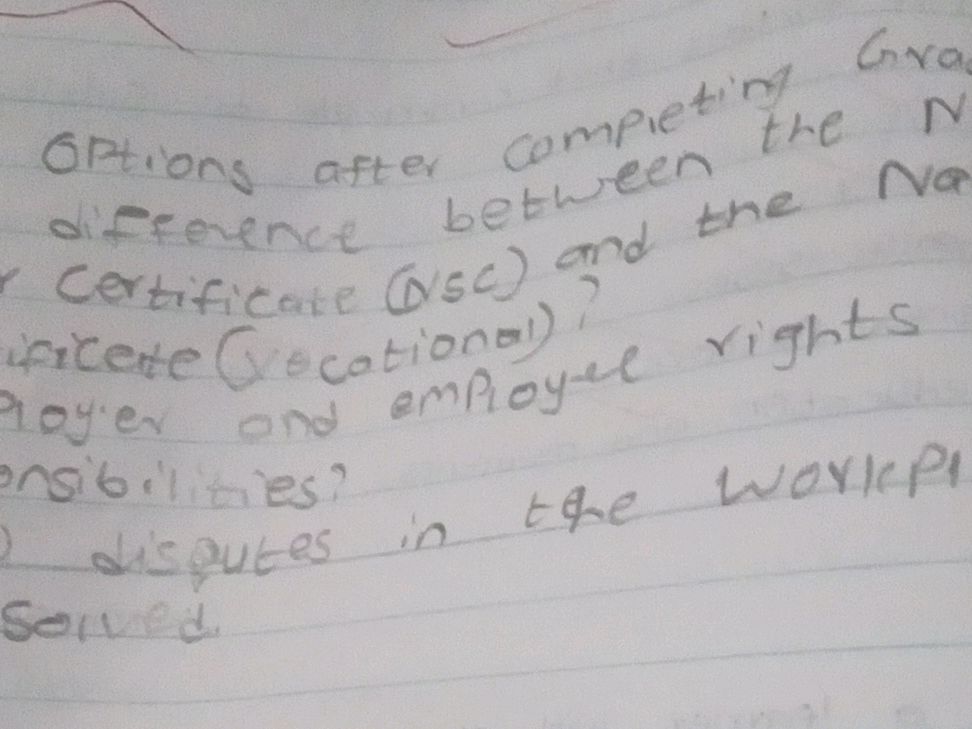 Options after completing Gra
difference between the N
r Certificate (NSC) and the Na
ificate (vocational)?
ployer and employee rights
onsibilities?
disputes in the workpl
solved.